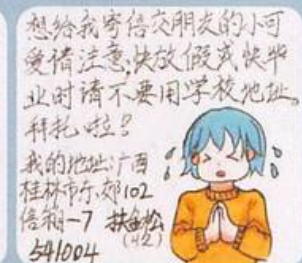 想给我寄信交朋友的小可
爱请注意,快放假或快毕
业时请不要用学校地址。
拜托啦!
我的地址:广西
桂林市东郊102
信箱-7 扶金松
(42)
541004